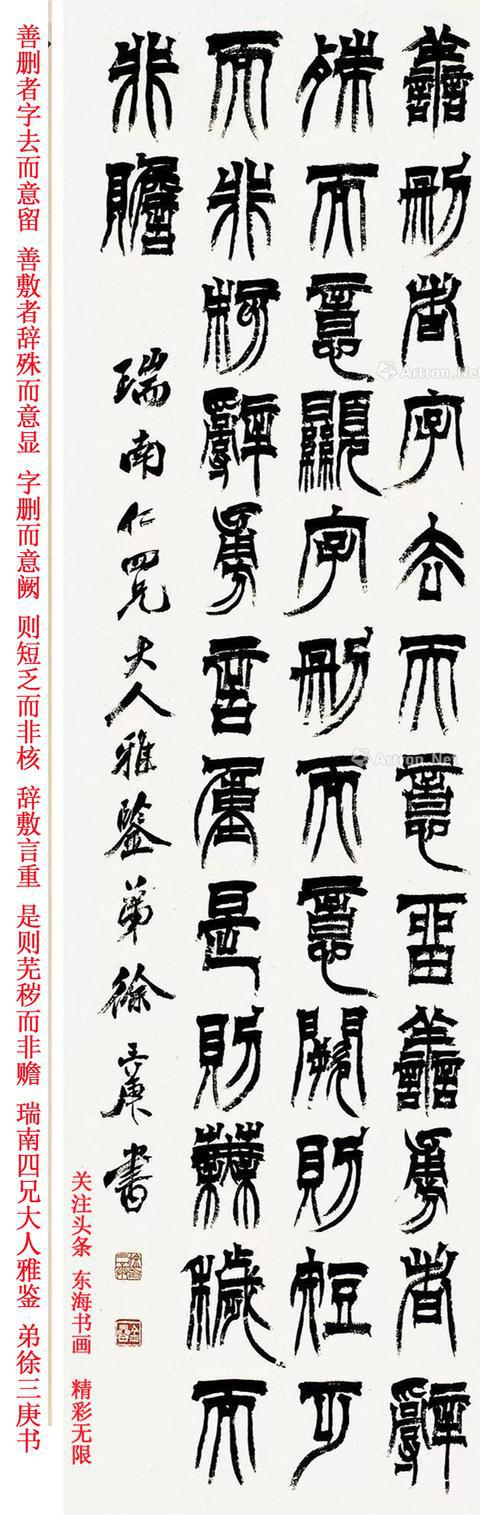 譱刪者字去而意畱譱旉者辭
殊而意顯字刪而意闕則短乏
而非核辭旉言重是則蕪穢而
非贍
瑞南仁四兄大人雅鑒弟徐三庚書
关注头条 东海书画 精彩无限
善删者字去而意留 善敷者辞殊而意显 字删而意阙 则短乏而非核 辞敷言重 是则芜秽而非赡 瑞南四兄大人雅鉴 弟徐三庚书
Artron.Net
Artron.Net